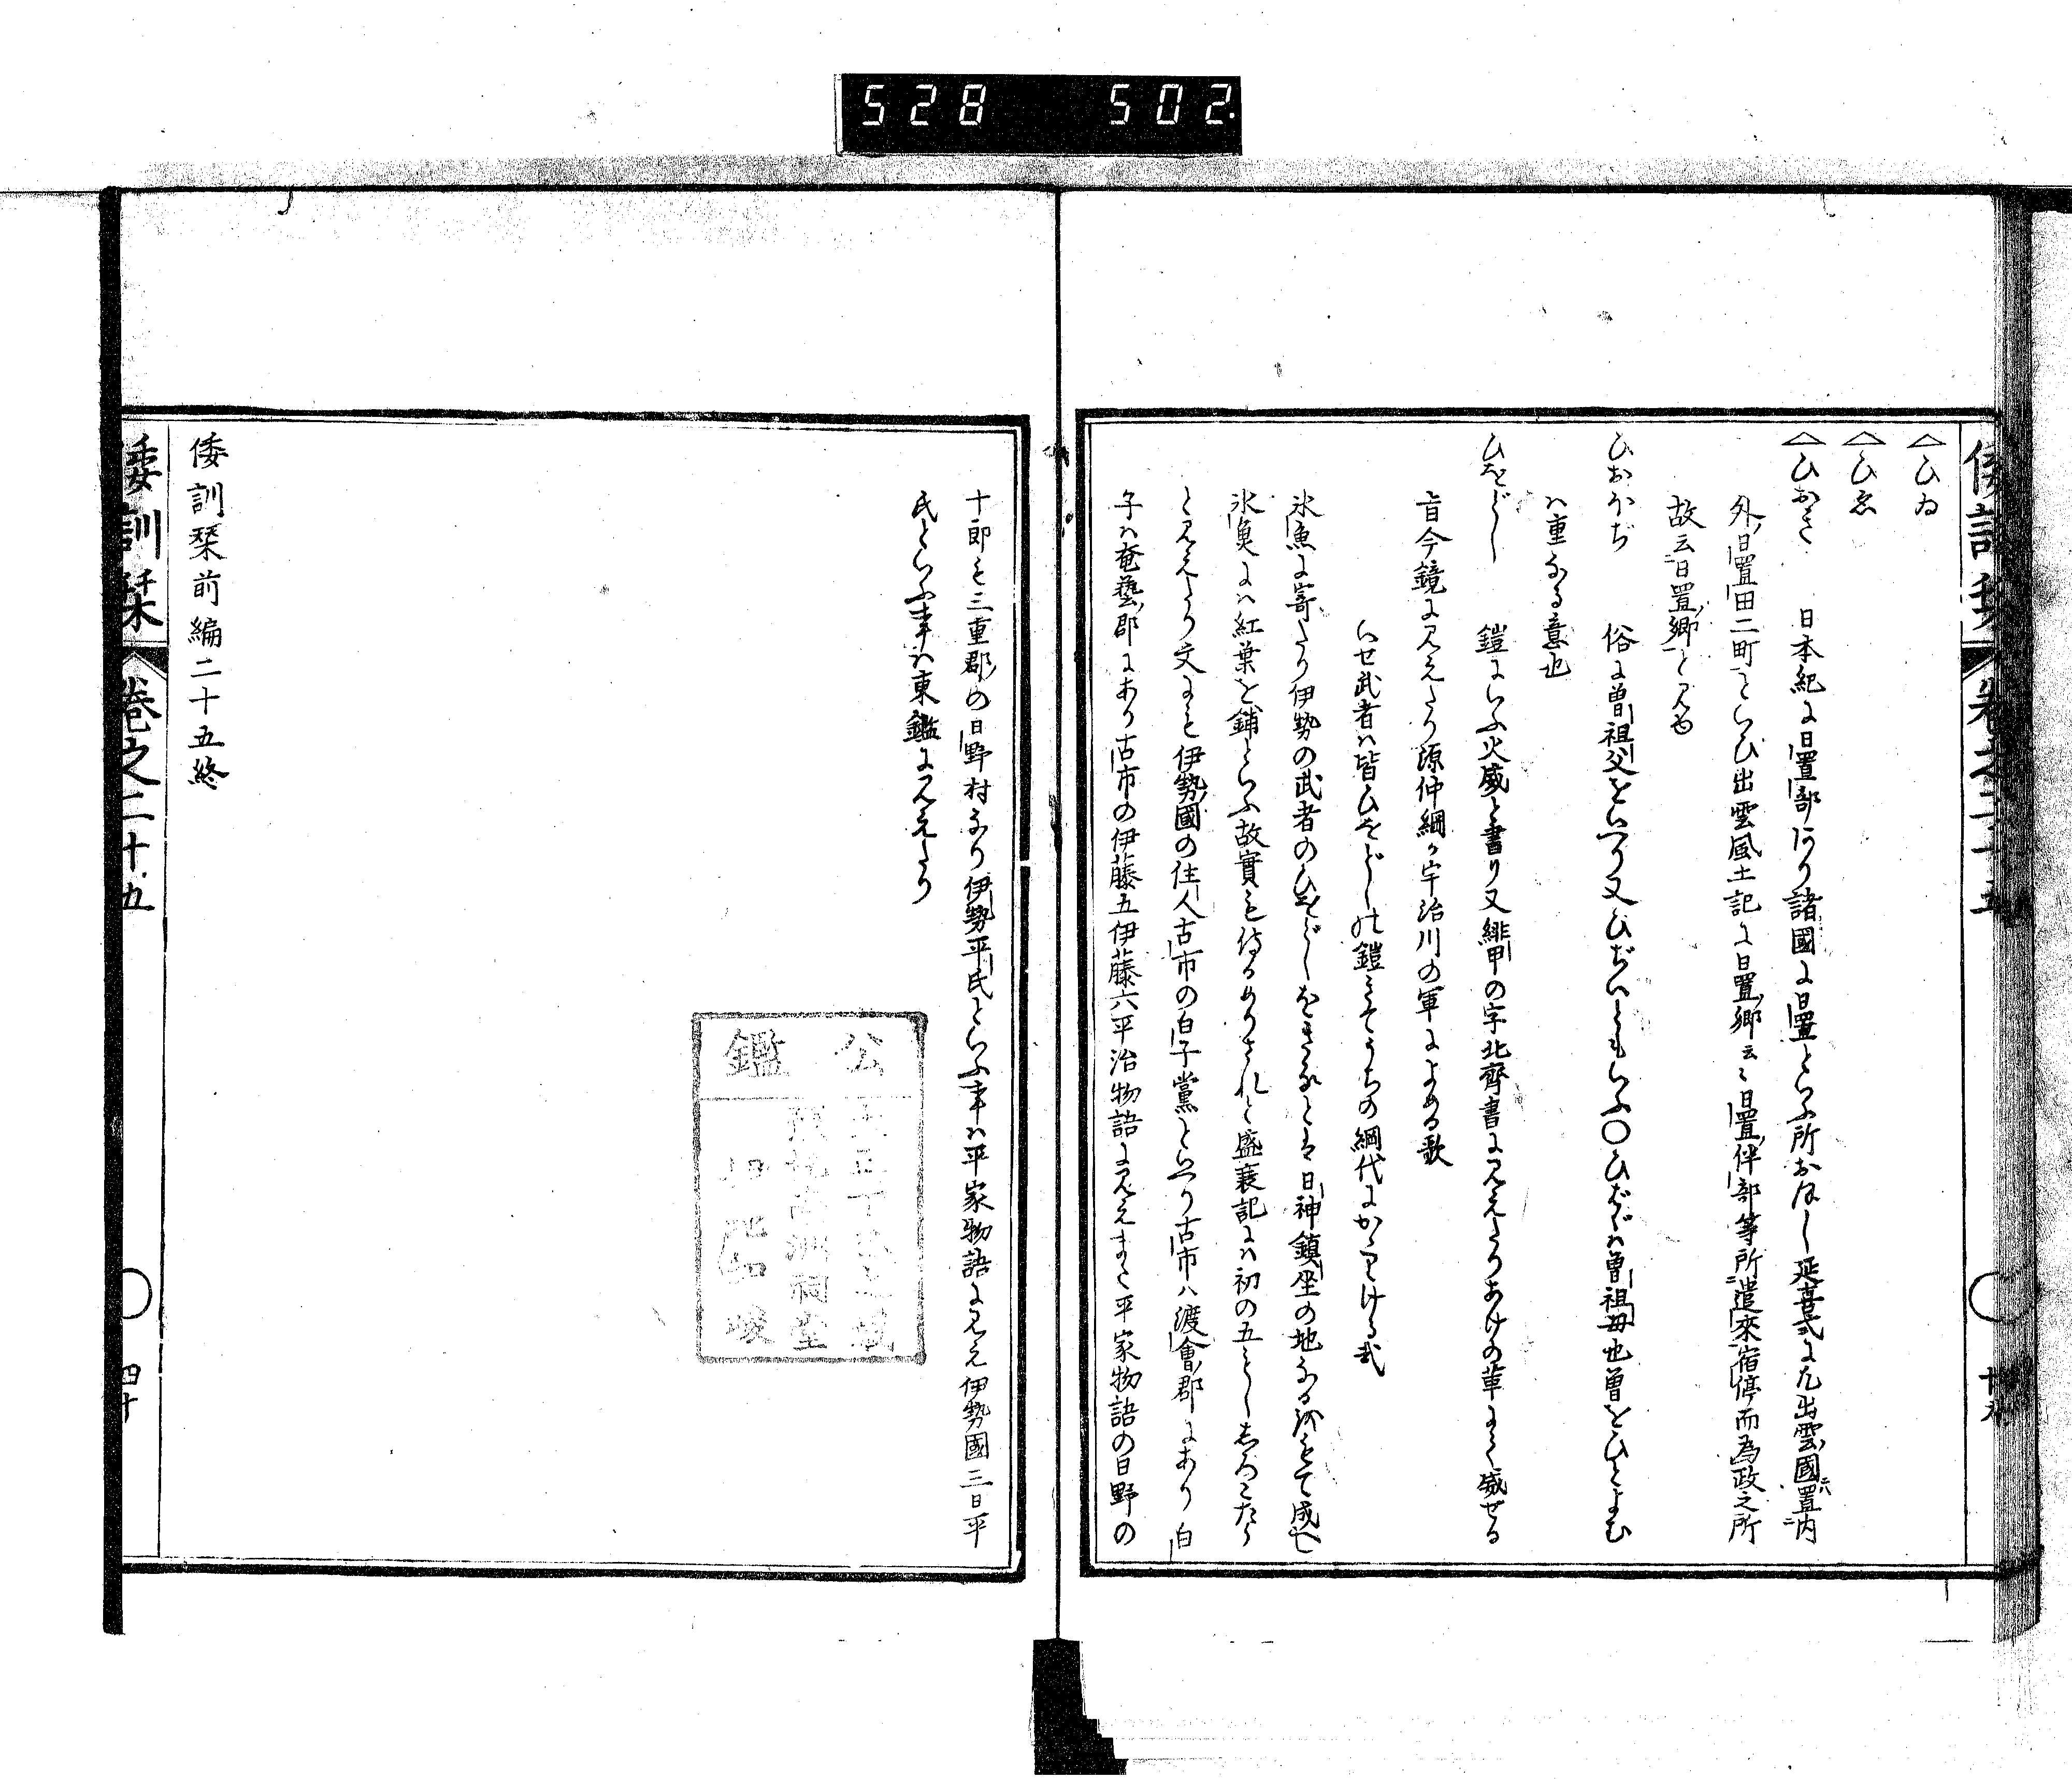 528 502
△ひゐ
△ひゑ
△ひおき 日本紀に日置部あり諸國に日置といふ所おほし延喜式に凡出雲國置内
外日置田二町といひ出雲風土記に日置郷云々日置伴部等所遣來宿停而為政之所
故云日置郷と見ゆ
ひおほぢ 俗に曽祖父をいへり又ひぢいともいふ○ひばゞハ曽祖母也曽をひとよむ
ハ重なる意也
ひをどし 鎧にいふ火威と書り又緋甲の字北齊書に見えたりあけの革にて威せる
旨今鏡に見えたり源仲綱か宇治川の軍によめる歌
いせ武者ハ皆ひをどしの鎧きてうちの網代にかゝりける哉
氷魚に寄たり伊勢の武者のひをどしをきるとは日神鎮坐の地なる故もて成へし
氷魚にハ紅葉を鋪といふ故實も侍るめりされと盛衰記にハ初の五もしあろこたう
と見えたり文にも伊勢國の住人古市の白子黨といへり古市ハ渡會郡にあり白
子ハ奄藝郡にあり古市の伊藤五伊藤六平治物語に見えまた平家物語の日野の
十郎も三重郡の日野村なり伊勢平氏といふ事ハ平家物語に見え伊勢國三日平
氏といふ事ハ東鑑に見えたり
倭訓栞前編二十五終
倭訓栞 卷之二十五 ○ 四十
公鑑